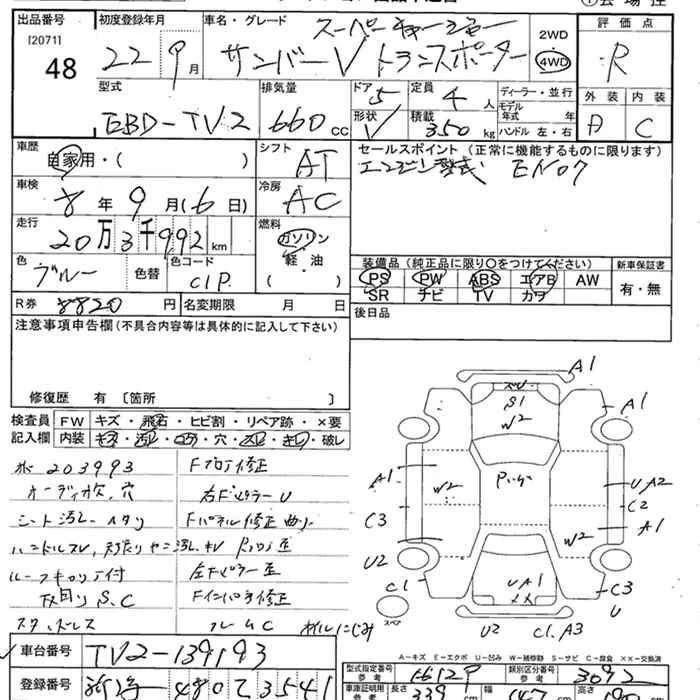 出品番号
[2071]
48
初度登録年月
22 9月
車名・グレード
スーパーチャージャー
サンバーV トランスポーター
2WD
4WD
評価点
R
外装 内装
A C
型式
EBD-TV2
排気量
660 CC
ドア 5
形状 V
定員 4 人
積載 350 kg
ディーラー・並行
モデル年式 年
ハンドル 左・右
車歴
自家用・( )
シフト
AT
車検
8年 9月 (6日)
冷房
AC
走行
20万3千992km
燃料
ガソリン
軽・油
( )
色
ブルー
色替
色コード
CIP
セールスポイント (正常に機能するものに限ります)
エンジン型式 EN07
装備品 (純正品に限り〇をつけてください)
PS PW ABS エアB AW
SR ナビ TV カワ
新車保証書
有・無
R券 8820 円
名変期限 月 日
後日品
注意事項申告欄(不具合内容等は具体的に記入して下さい)
修復歴 有 [箇所 ]
検査員記入欄
FW キズ・飛石・ヒビ割・リペア跡・×要
内装 キズ・汚れ・コゲ・穴・スレ・キレ・破レ
203993
オーディオ欠、穴
シート汚れ、ヘタリ
ハンドルスレ
下回りS、C
スタッドレス
修正
右FピラーU
Fパネル修正 曲り
左Fピラー歪
Fインパネ修正
フレームC
オイルにじみ
A1
S1
W2
A1
A1
W2
C3
U2
C1
UA2
C2
A1
W2
C3
U
UA1
XX
U2
C1.A3
スペア
A−キズ E−エクボ U−凹み W−補修跡 S−サビ C−腐食 ××−交換済
車台番号
TV2-139193
登録番号
480 て 3541
型式指定番号
参考
16129
類別区分番号
参考
3092
車庫証明
参考
長さ
339
幅
高さ